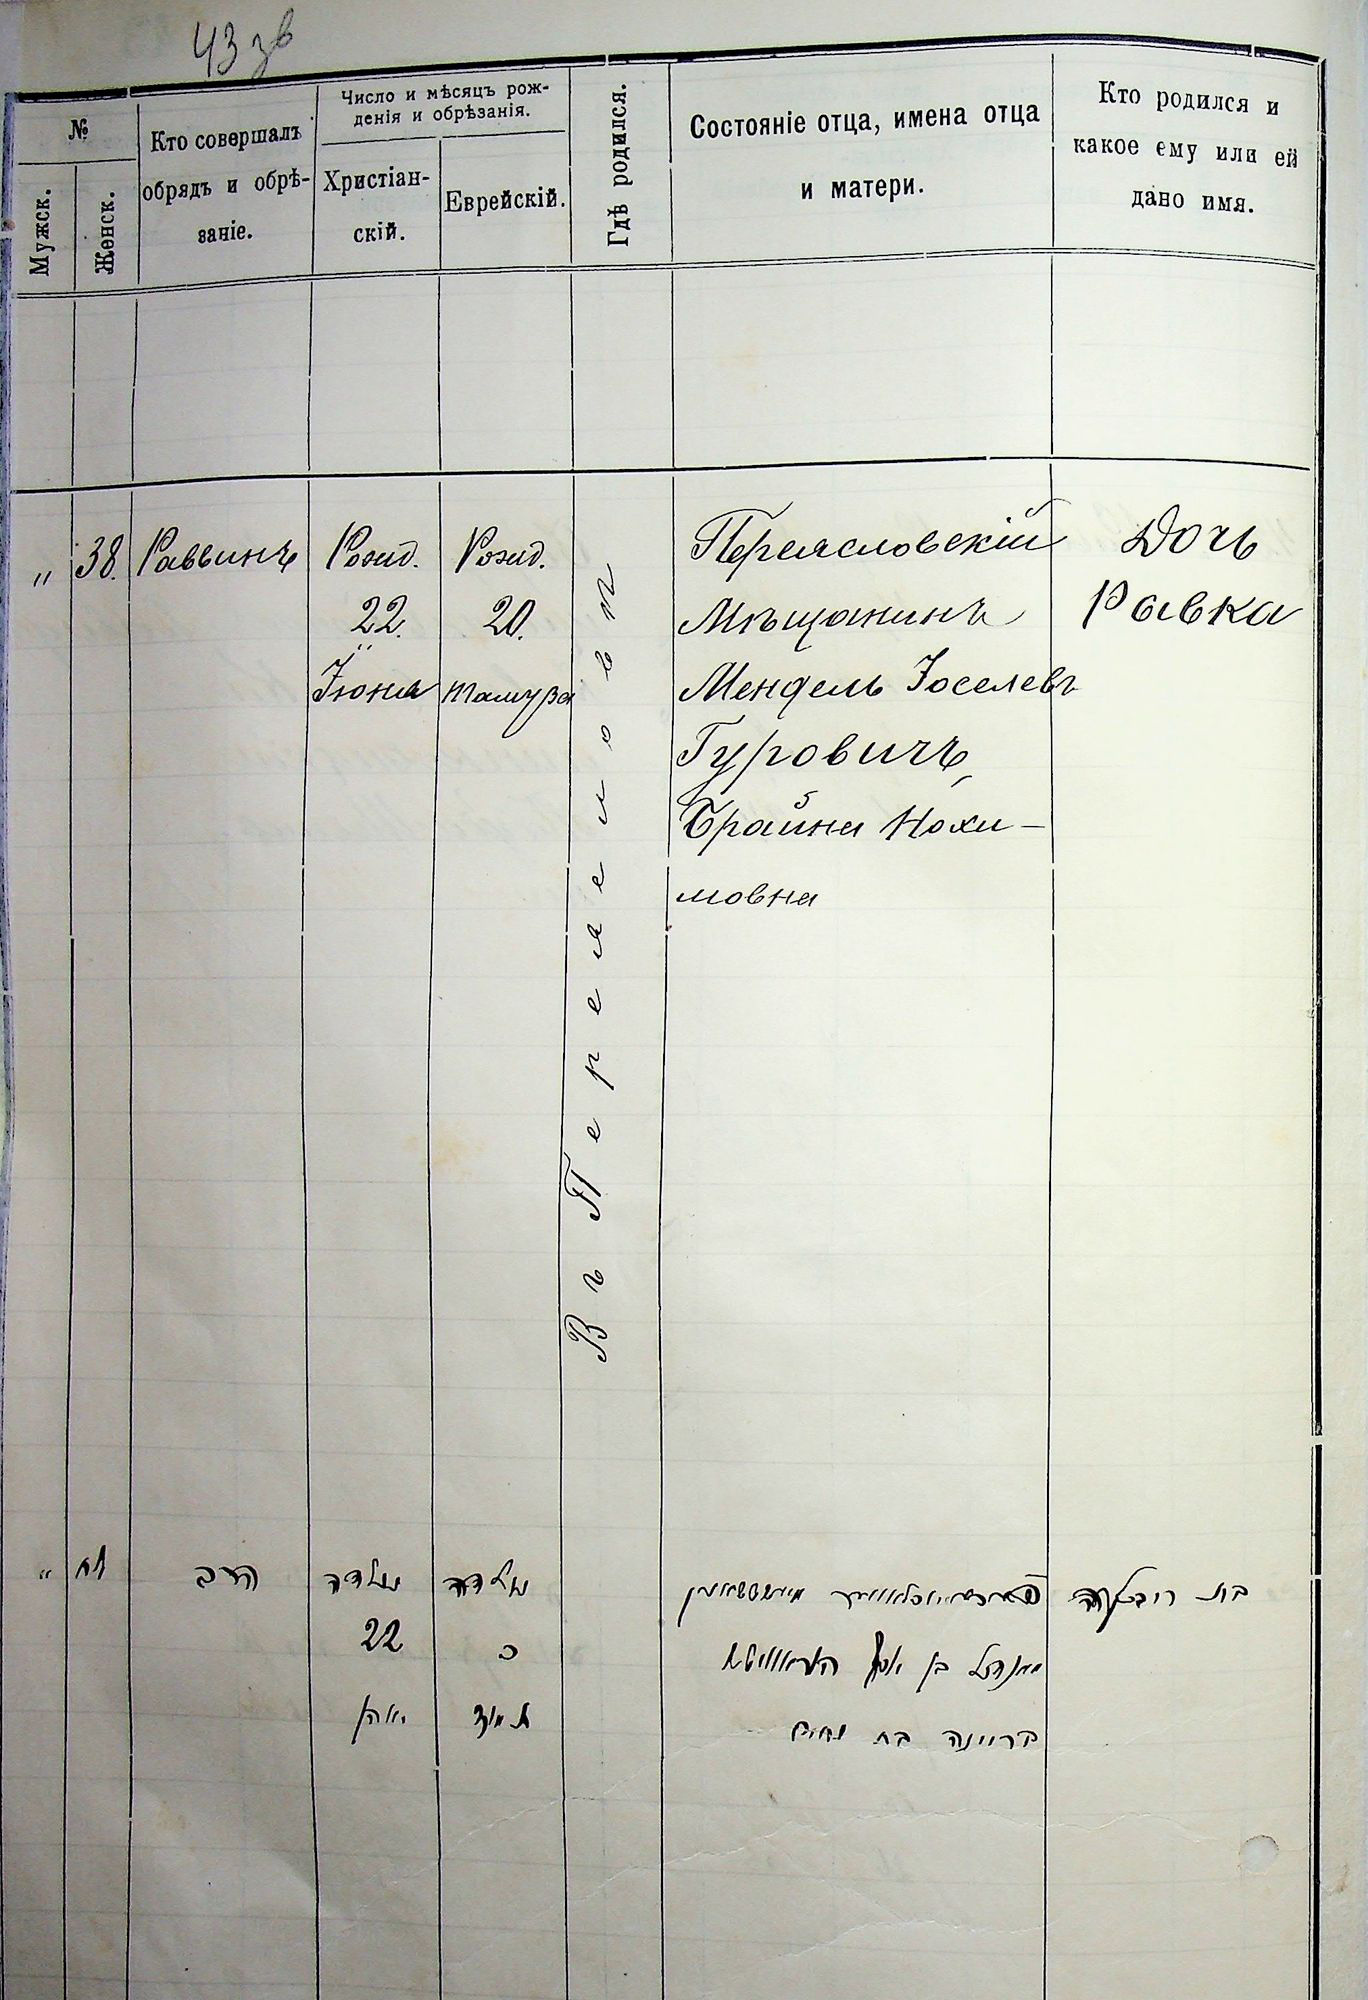 43 зв
№
Мужск.
Женск.
Кто совершалъ
обрядъ и обрѣ-
заніе.
Число и мѣсяцъ рож-
денія и обрѣзанія.
Христіан-
скій.
Еврейскій.
Гдѣ родился.
Состояніе отца, имена отца
и матери.
Кто родился и
какое ему или ей
дано имя.
„
38.
Раввинъ
Рожд.
22.
Іюня
Рожд.
20.
тамуза
Въ Переяславѣ
Переясловскій
Мѣщанинъ
Мендель Іоселевъ
Гуровичъ,
Брайна Нохи-
мовна
Дочь
Рывка
„
לח
הרב
נולדה
22
יאהן
נולדה
כ
תמוז
מענדל בן יוסף
בריינה בת נחום
בת ריבקה